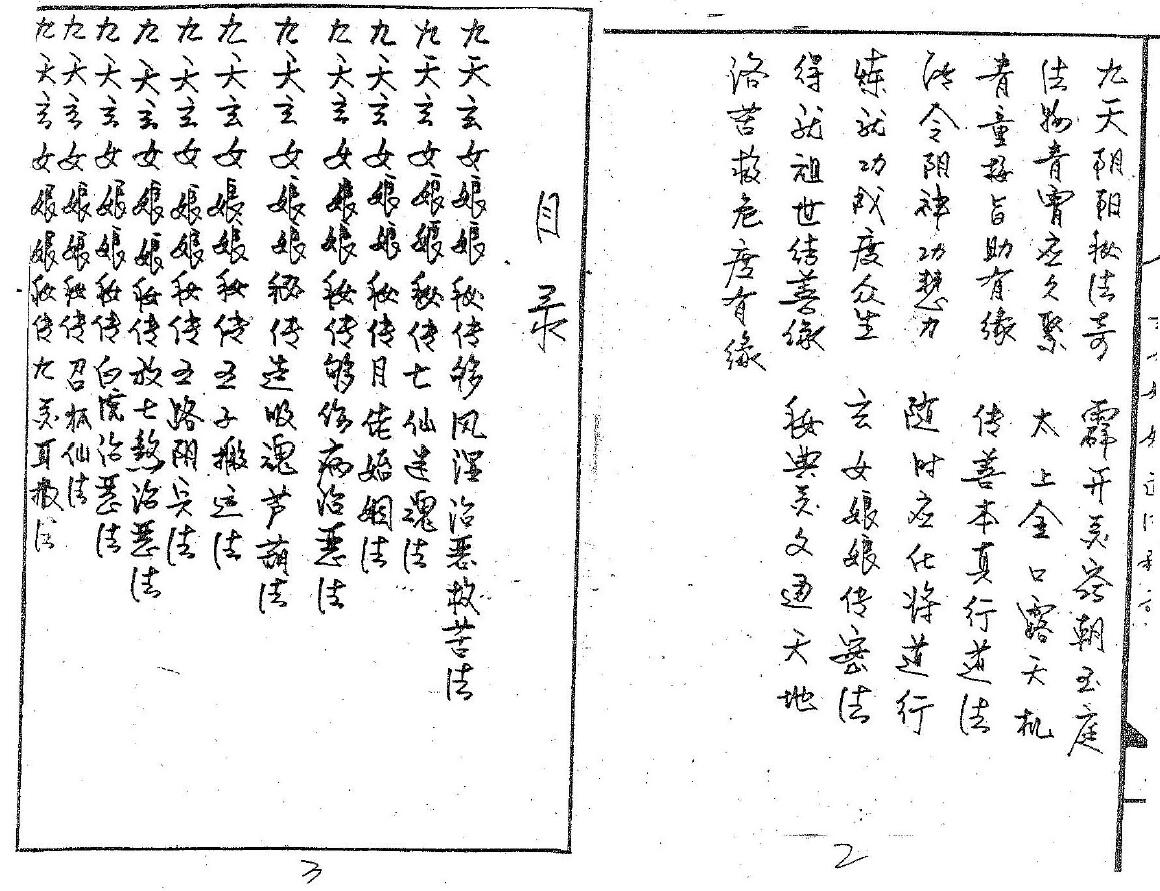 九天朝阳秘法奇 霹开灵窍朝玉庭
法物青霄应久聚 太上金口露天机
青童接旨助有缘 传善本真行道法
法令阴神功慧力 随时应化将道行
炼就功成度众生 玄女娘娘传密法
得就祖世结善缘 秘典灵文通天地
洛苦救危度有缘
2
目录
九天玄女娘娘秘传够风湿治恶救苦法
九天玄女娘娘秘传七仙迷魂法
九天玄女娘娘秘传月佬婚姻法
九天玄女娘娘秘传够伤病治恶法
九天玄女娘娘秘传造吸魂芦葫法
九天玄女娘娘秘传五子搬运法
九天玄女娘娘秘传五路阴兵法
九天玄女娘娘秘传放七煞治恶法
九天玄女娘娘秘传白虎治恶法
九天玄女娘娘秘传召狐仙法
九天玄女娘娘秘传九灵耳报法
3